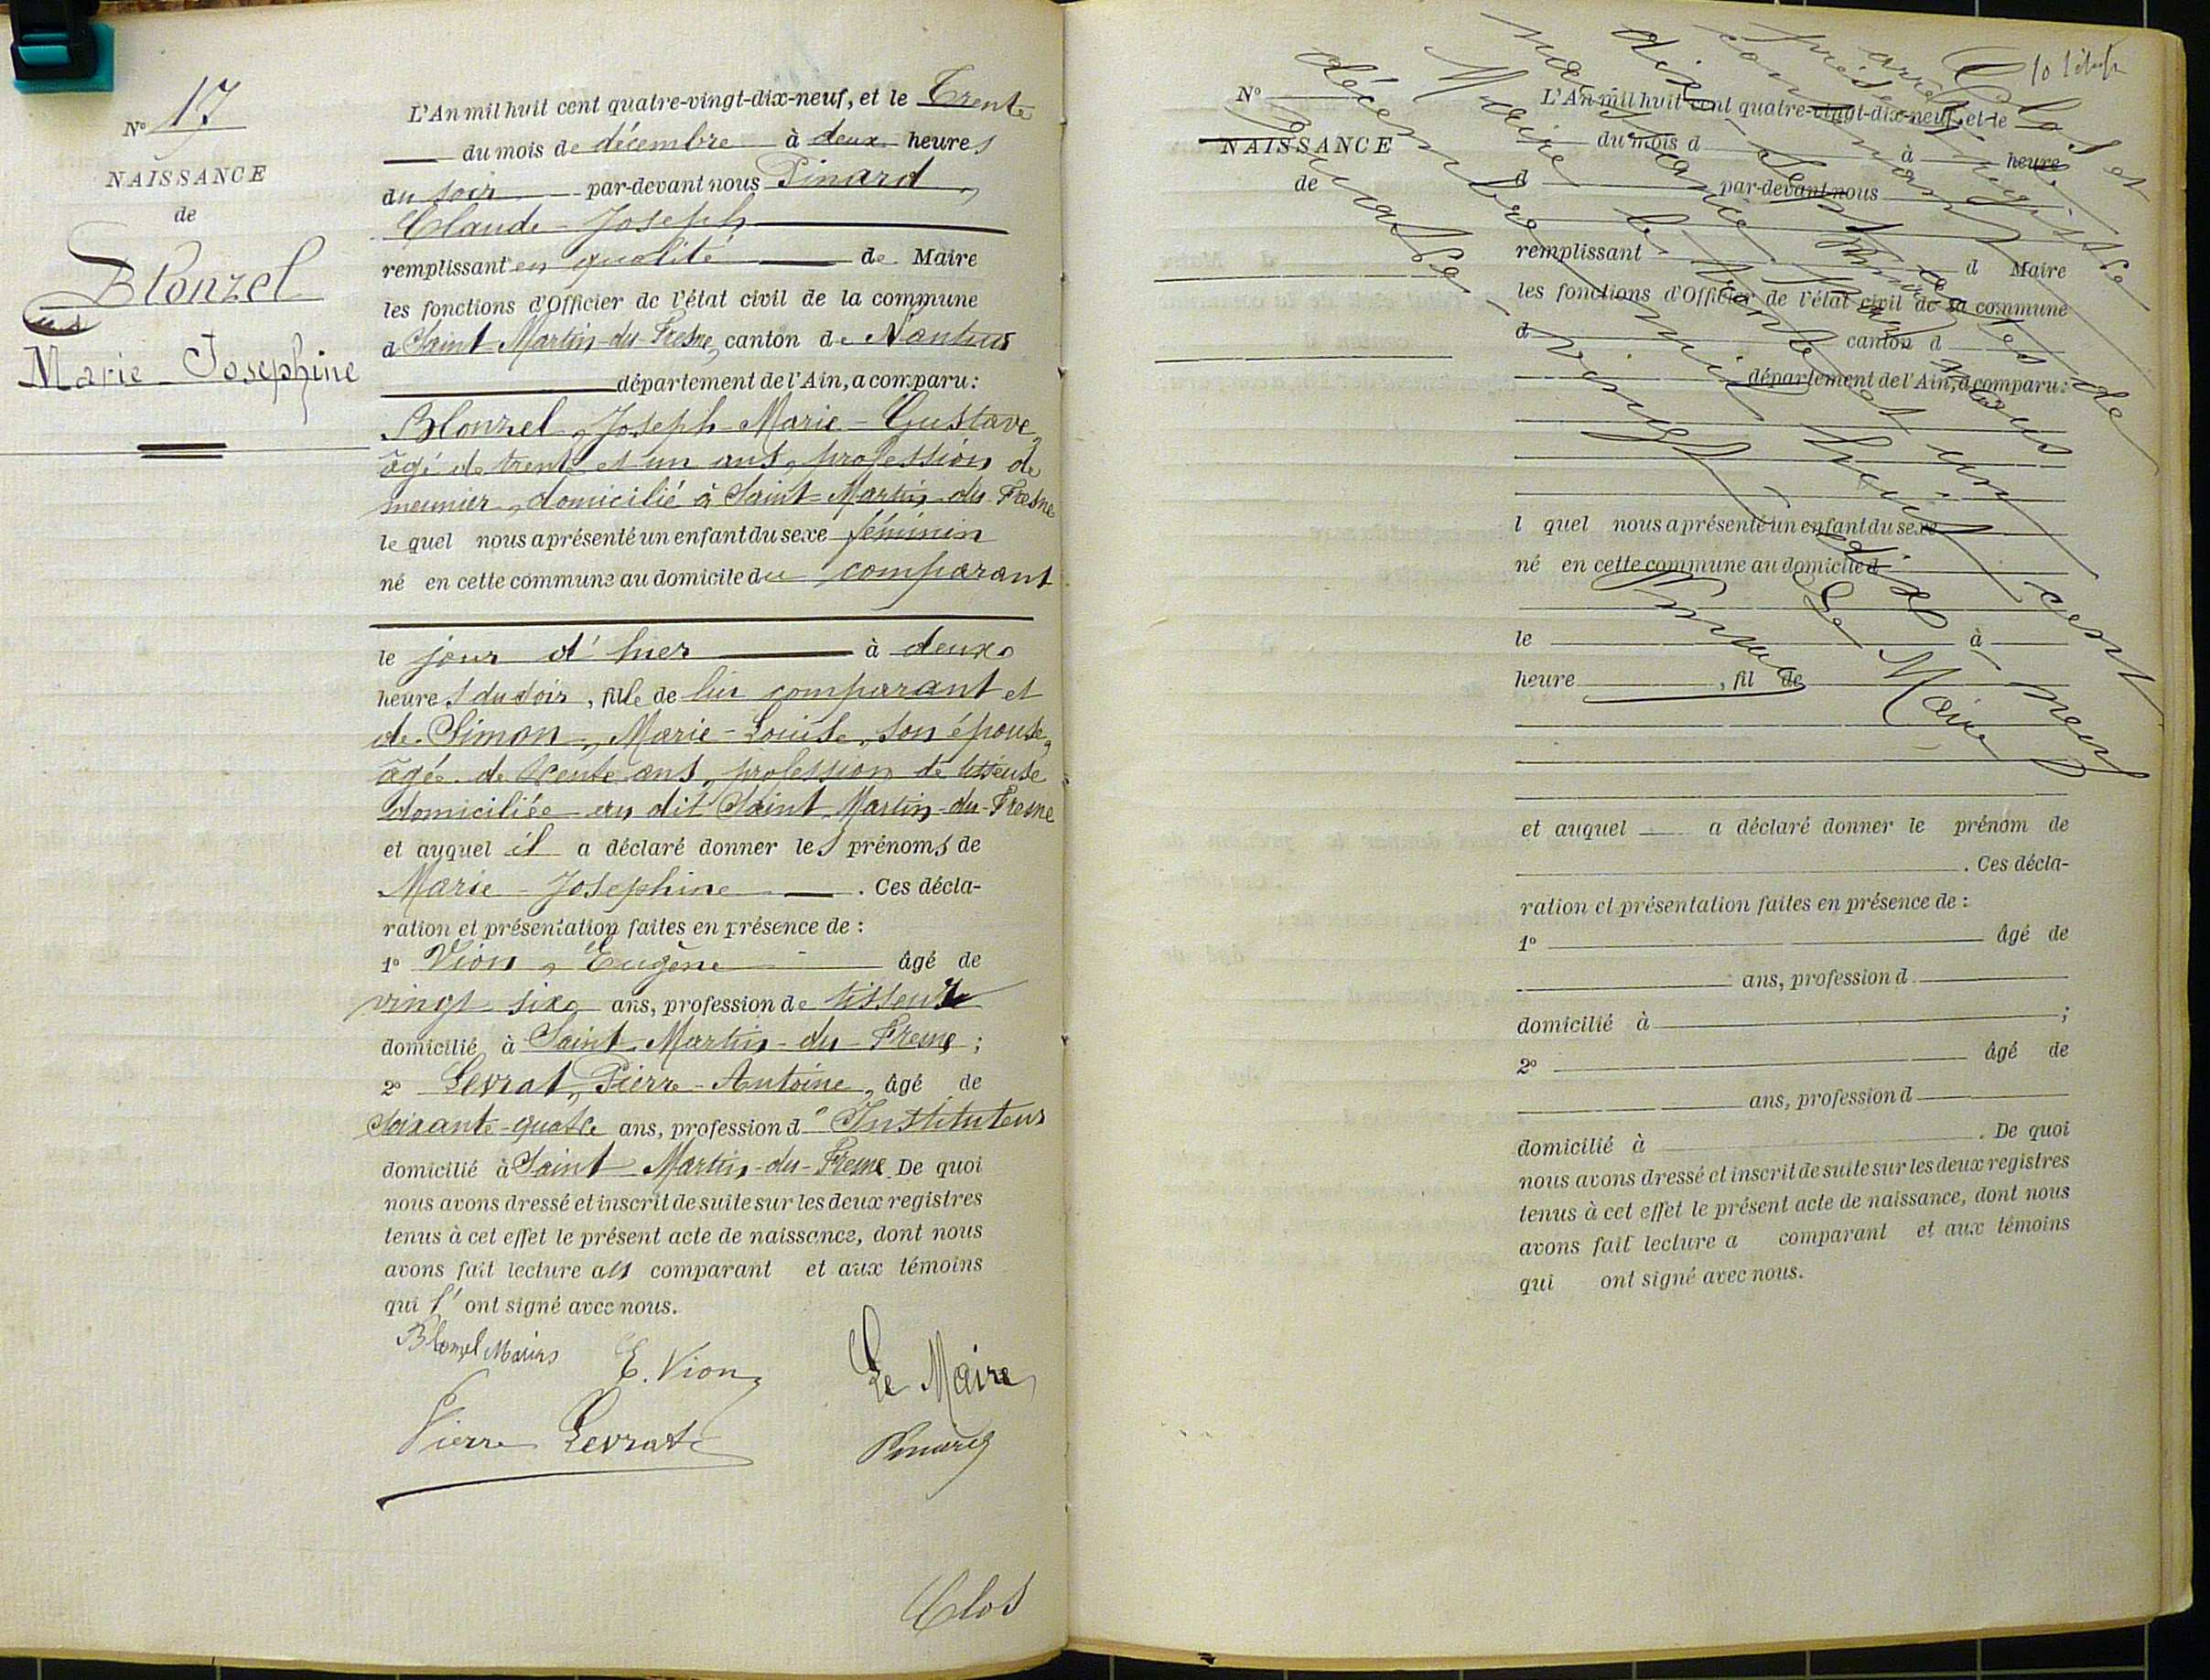 N° 17
NAISSANCE
de
Blonzel
Marie-Josephine
L'An mil huit cent quatre-vingt-dix-neuf, et le Trente
du mois de décembre à deux heures
du soir par-devant nous Pinard,
Claude-Joseph
remplissant en qualité de Maire
les fonctions d'Officier de l'état civil de la commune
d Saint Martin-du-Fresne, canton de Nantua
département de l'Ain, a comparu:
Blonzel, Joseph-Marie-Gustave,
âgé de trente et un ans, profession de
meunier, domicilié à Saint-Martin-du-Fresne
le quel nous a présenté un enfant du sexe féminin
né en cette commune au domicile du comparant
le jour d'hier à deux
heures du soir, fille de lui comparant et
de Simon, Marie-Louise, son épouse,
âgée de trente ans, profession de tisseuse
domiciliée au dit Saint Martin-du-Fresne
et auquel il a déclaré donner les prénoms de
Marie-Josephine. Ces décla-
ration et présentation faites en présence de :
1° Vion, Eugène âgé de
vingt six ans, profession de tisseur
domicilié à Saint Martin-du-Fresne ;
2° Levrat, Pierre-Antoine, âgé de
soixante-quatre ans, profession d'Instituteur
domicilié à Saint Martin-du-Fresne. De quoi
nous avons dressé et inscrit de suite sur les deux registres
tenus à cet effet le présent acte de naissance, dont nous
avons fait lecture au comparant et aux témoins
qui l'ont signé avec nous.
Blonzel Marius E. Vion Le Maire
Pierre Levrat Pinard
Clos
N°
NAISSANCE
de
L'An mil huit cent quatre-vingt-dix-neuf, et le
du mois d à heure
d par-devant nous
remplissant d Maire
les fonctions d'Officier de l'état civil de la commune
d canton d
département de l'Ain, a comparu:
l quel nous a présenté un enfant du sexe
né en cette commune au domicile d
le à
heure , fil de
et auquel a déclaré donner le prénom de
. Ces décla-
ration et présentation faites en présence de :
1° âgé de
ans, profession d
domicilié à ;
2° âgé de
ans, profession d
domicilié à . De quoi
nous avons dressé et inscrit de suite sur les deux registres
tenus à cet effet le présent acte de naissance, dont nous
avons fait lecture a comparant et aux témoins
qui ont signé avec nous.
Clos et
arrêté le
présent registre
contenant
dix-sept actes de
naissances par nous
Maire le trente et un
décembre mil huit cent
quatre-vingt-dix-neuf
Le Maire
Pinard